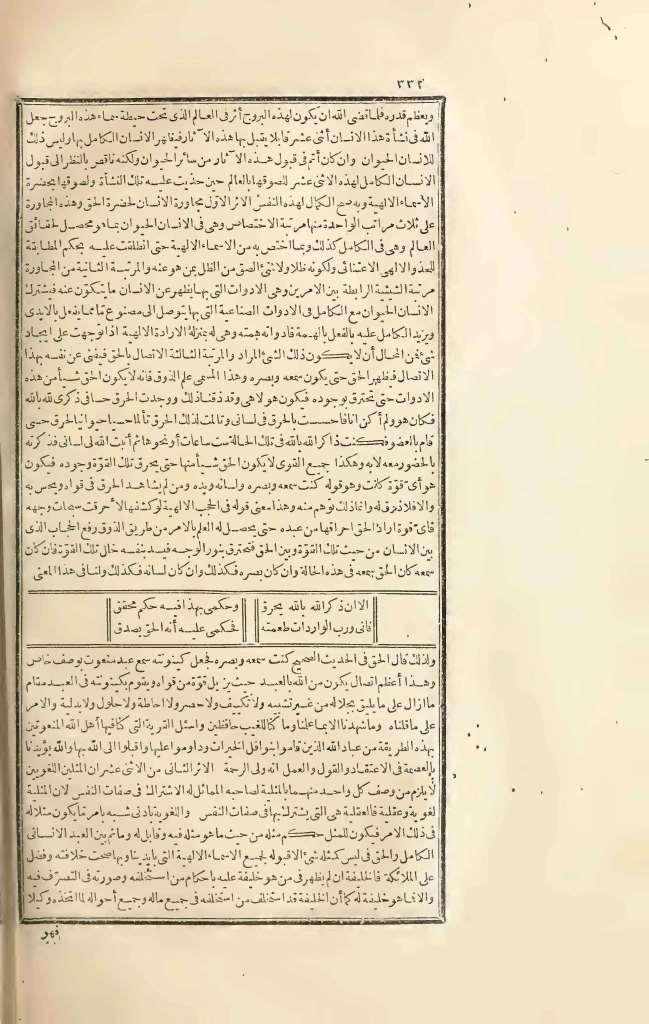 ٣٣٢
وبعظم قدره فلما قضى الله ان يكون لهذه البروج أثر فى العالم الذى تحت حيطة سماء هذه البروج جعل
الله فى نشأة هذا الانسان اثنى عشر قابلا يقبل بها هذه الآثار فيظهر الانسان الكامل بها وليس ذلك
للانسان الحيوان وان كان أتم فى قبول هذه الآثار من سائر الحيوان ولكنه ناقص بالنظر الى قبول
الانسان الكامل لهذه الاثنى عشر للصوقها بالعالم حين حذيت عليه تلك النشأة ولصوقها بحضرة
الأسماء الالهية وبه صح الكمال لهذه النفس الاثر الاول مجاورة الانسان لحضرة الحق وهذه المجاورة
على ثلاث مراتب الواحدة منها مرتبة الاختصاص وهى فى الانسان الحيوان بما هو محصل لحقائق
العالم وهى فى الكامل كذلك وبما اختص به من الاسماء الالهية حتى انطلقت عليه بحكم المطابقة
للحذو الالهى الاعتنائى ولكونه ظلا ولا شئ الصق من الظل بمن هو عنه والمرتبة الثانية من المجاورة
مرتبة الشيئية الرابطة بين الامرين وهى الادوات التى بها يظهر عن الانسان ما يتكون عنه فيشترك
الانسان الحيوان مع الكامل فى الادوات الصناعية التى بها يتوصل الى مصنوع تا مما يفعل بالايدى
ويزيد الكامل عليه بالفعل بالهمة فادواته همته وهى له بمنزلة الارادة الالهية اذا توجهت على ايجاد
شئ فمن المحال أن لا يكون ذلك الشئ المراد والمرتبة الثالثة الاتصال بالحق فيفنى عن نفسه بهذا
الاتصال فيظهر الحق حتى يكون سمعه وبصره وهذا المسمى علم الذوق فانه لا يكون الحق شيأ من هذه
الادوات حتى تحترق بوجوده فيكون هو لا هى وقد ذقنا ذلك ووجدت الحرق حسا فى ذكرى لله بالله
فكان هو ولم أكن انا فاحسست بالحرق فى لسانى وتألمت لذلك الحرق تألما حسيا حيوانيا لحرق حسى
قام بالعضو فكنت ذاكر الله بالله فى تلك الحالة ست ساعات أو نحوها ثم أنبت الله لى لسانى فذكرته
بالحضور معه لا به وهكذا جميع القوى لا يكون الحق شيأ منها حتى يحرق تلك القوة وجوده فيكون
هو أى قوة كانت وهو قوله كنت سمعه وبصره ولسانه ويده ومن لم يشاهد الحرق فى قواه ويحس به
والا فلا ذوق له وانما ذلك توهم منه وهذا معنى قوله فى الحجب الالهية لو كشفها لأحرقت سبحات وجهه
فاى قوة اراد الحق احراقها من عبده حتى يحصل له العلم بالامر من طريق الذوق رفع الحجاب الذى
بين الانسان من حيث تلك القوة وبين الحق فتحترق بنور الوجه فيسد بنفسه خلل تلك القوة فان كان
سمعه كان الحق سمعه فى هذه الحالة وان كان بصره فكذلك وان كان لسانه فكذلك ولنا فى هذا المعنى
الا ان ذكر الله بالله يحرق وحكمى بهذا فيه حكم محقق
فانى ورب الواردات طعمته فحكمى عليه أنه الحق يصدق
ولذلك قال الحق فى الحديث الصحيح كنت سمعه وبصره فجعل كينونته سمع عبد منعوت بوصف خاص
وهذا أعظم اتصال يكون من الله بالعبد حيث يزيل قوة من قواه ويقوم بكينونته فى العبد مقام
ما ازال على ما يليق بجلاله من غير تشبيه ولا تكييف ولا حصر ولا احاطة ولا حلول ولا بدلية والامر
على ما قلناه وما شهدنا الا بما علمنا وما كنا للغيب حافظين واسئل القرية التى كنا فيها أهل الله المنعوتين
بهذه الطريقة من عباد الله الذين قاموا بنوافل الخيرات وداوموا عليها واقبلوا الى الله بها والله يؤيدنا
بالعصمة فى الاعتقاد والقول والعمل انه ولى الرحمة الاثر الثانى من الاثنى عشر ان المثلين اللغويين
لا يلزم من وصف كل واحد منهما بالمثلية لصاحبه المماثل له الاشتراك فى صفات النفس لان المثلية
لغوية وعقلية فالعقلية هى التى يشترك بها فى صفات النفس واللغوية بادنى شبه بامر تا يكون مثلا له
فى ذلك الامر فيكون للمثل حكم مثله من حيث ما هو مثله فيه وقابل له وما ثم بين العبد الانسانى
الكامل والحق فى ليس كمثله شئ الا قبوله لجميع الاسماء الالهية التى بايدينا وبها صحت خلافته وفضل
على الملائكة فالخليفة ان لم يظهر فى من هو خليفة عليه باحكام من استخلفه وصورته فى التصرف فيه
والا فما هو خليفة له كما أن الخليفة قد استخلف من استخلفه فى جميع ماله وجميع أحواله لما اتخذه وكيلا
فهو